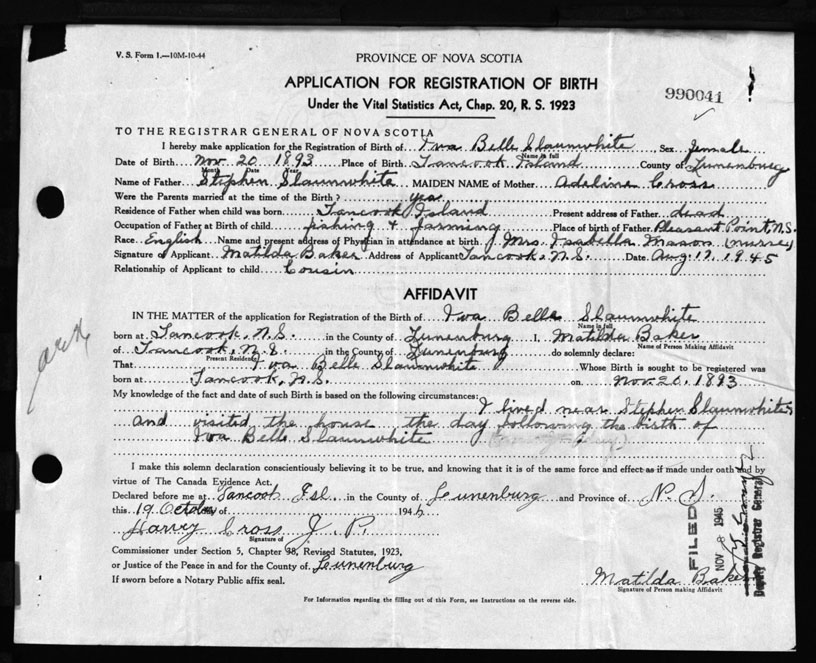 V. S. Form 1.—10M-10-44
PROVINCE OF NOVA SCOTIA
APPLICATION FOR REGISTRATION OF BIRTH
Under the Vital Statistics Act, Chap. 20, R. S. 1923
990041
TO THE REGISTRAR GENERAL OF NOVA SCOTIA
I hereby make application for the Registration of Birth of Iva Belle Slaunwhite Sex Female
Name in full
Date of Birth Nov. 20 1893 Place of Birth Tancook Island County of Lunenburg
Month Date Year
Name of Father Stephen Slaunwhite MAIDEN NAME of Mother Adeline Cross
Were the Parents married at the time of the Birth? Yes
Residence of Father when child was born Tancook Island Present address of Father dead
Occupation of Father at Birth of child fishing & farming Place of birth of Father Pleasant Point N.S.
Race English Name and present address of Physician in attendance at birth Mrs. Isabella Mason (nurse)
Signature of Applicant Matilda Baker Address of Applicant Tancook, N.S. Date Aug 17, 1945
Relationship of Applicant to child Cousin
AFFIDAVIT
IN THE MATTER of the application for Registration of the Birth of Iva Belle Slaunwhite
Name in full
born at Tancook, N.S. in the County of Lunenburg I, Matilda Baker
Name of Person Making Affidavit
of Tancook, N.S. in the County of Lunenburg do solemnly declare:
Present Residence
That Iva Belle Slaunwhite Whose Birth is sought to be registered was
born at Tancook, N.S. on Nov. 20, 1893
My knowledge of the fact and date of such Birth is based on the following circumstances:
I lived near Stephen Slaunwhites
and visited the house the day following the birth of
Iva Belle Slaunwhite
I make this solemn declaration conscientiously believing it to be true, and knowing that it is of the same force and effect as if made under oath and by
virtue of The Canada Evidence Act.
Declared before me at Tancook Isl in the County of Lunenburg and Province of N.S.
this 19 October of 194
Harvey Cross J. P.
Signature of
Commissioner under Section 5, Chapter 38, Revised Statutes, 1923,
or Justice of the Peace in and for the County of Lunenburg
If sworn before a Notary Public affix seal.
Matilda Baker
Signature of Person making Affidavit
For Information regarding the filling out of this Form, see Instructions on the reverse side.
FILED
NOV 8 1945
Deputy Registrar General